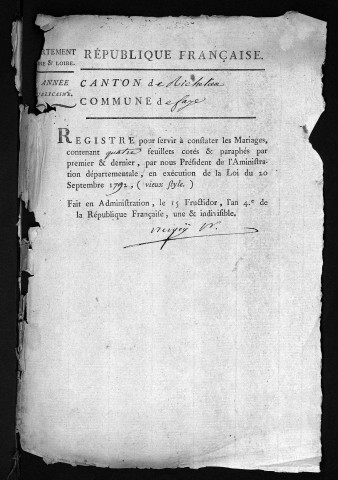 RTEMENT
RE & LOIRE.
RÉPUBLIQUE FRANÇAISE.
ANNÉE
BLICAINE.
CANTON de Richelieu
COMMUNE de faye
REGISTRE pour servir à constater les Mariages,
contenant quatre feuillets cotés & paraphés par
premier & dernier, par nous Président de l'Aministra-
tion départementale, en exécution de la Loi du 20
Septembre 1792, (vieux style.)
Fait en Administration, le 15 Fructidor, l'an 4.e de
la République Française, une & indivisible.